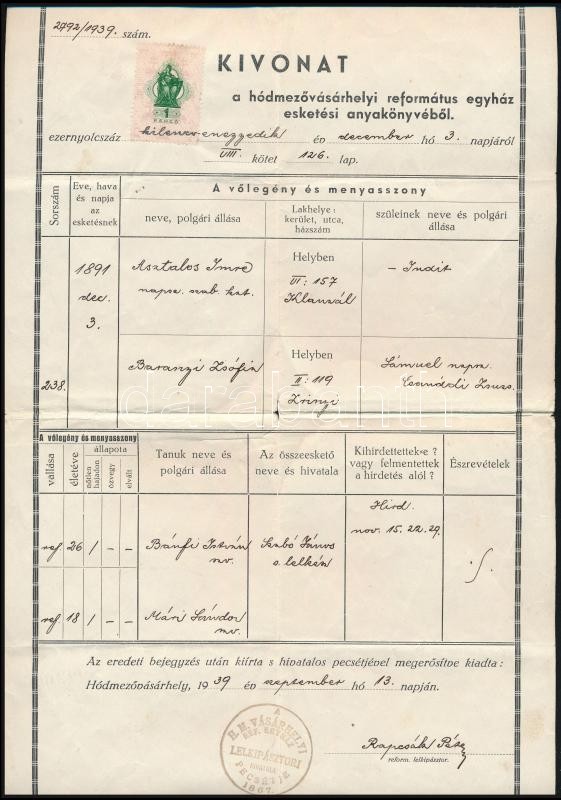 2792/1939. szám.
1
PENGŐ
KIVONAT
a hódmezővásárhelyi református egyház
esketési anyakönyvéből.
ezernyolcszáz kilencvenegyedik év december hó 3. napjáról
VIII. kötet 126. lap.
Sorszám
Eve, hava és napja az esketésnek
A vőlegény és menyasszony
neve, polgári állása
Lakhelye: kerület, utca, házszám
szüleinek neve és polgári állása
238.
1891
dec.
3.
Asztalos Imre
napsz. szab. kat.
Helyben
VI: 157
Klauzál
- Judit
Baranyi Zsófia
Helyben
II: 119
Zrinyi
Sámuel napsz.
Csanádi Zsuzs.
darabanth
A vőlegény és menyasszony
vallása
életéve
állapota
nőtlen hajadon
özvegy
elvált
Tanuk neve és polgári állása
Az összeeskető neve és hivatala
Kihirdettettek-e? vagy felmentettek a hirdetés alól?
Észrevételek
ref 26 / - -
Bánfi István
mv.
Szabó János
s. lelkész
Hird.
nov. 15. 22. 29.
ref 18 / - -
Mári Sándor
mv.
Az eredeti bejegyzés után kiírta s hivatalos pecsétjével megerősítve kiadta:
Hódmezővásárhely, 1939 év szeptember hó 13. napján.
A
H. M. VÁSÁRHELYI
REF. EGYHÁZ
LELKIPÁSZTORI
HIVATALA
PECSÉTJE
1867.
Rapcsák Péter
reform. lelkipásztor.